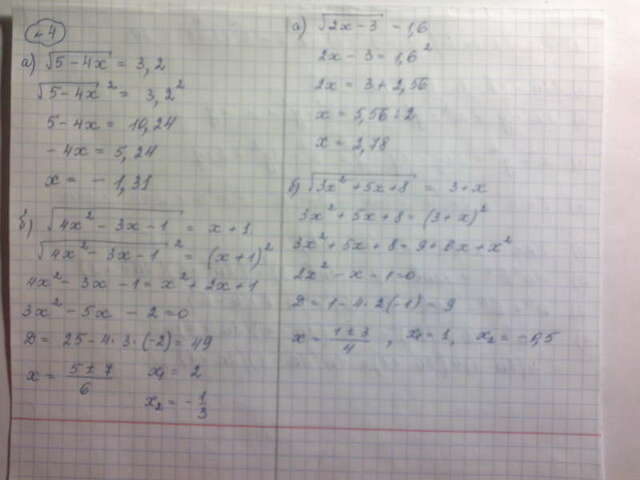 № 4
а) √(5 - 4x) = 3,2
√(5 - 4x)² = 3,2²
5 - 4x = 10,24
- 4x = 5,24
x = - 1,31
б) √(4x² - 3x - 1) = x + 1
√(4x² - 3x - 1)² = (x + 1)²
4x² - 3x - 1 = x² + 2x + 1
3x² - 5x - 2 = 0
D = 25 - 4·3·(-2) = 49
x = (5 ± 7)/6 x₁ = 2
x₂ = - 1/3
а) √(2x - 3) = 1,6
2x - 3 = 1,6²
2x = 3 + 2,56
x = 5,56 : 2
x = 2,78
б) √(3x² + 5x + 8) = 3 + x
3x² + 5x + 8 = (3 + x)²
3x² + 5x + 8 = 9 + 6x + x²
2x² - x - 1 = 0
D = 1 - 4·2(-1) = 9
x = (1 ± 3)/4, x₁ = 1, x₂ = -0,5